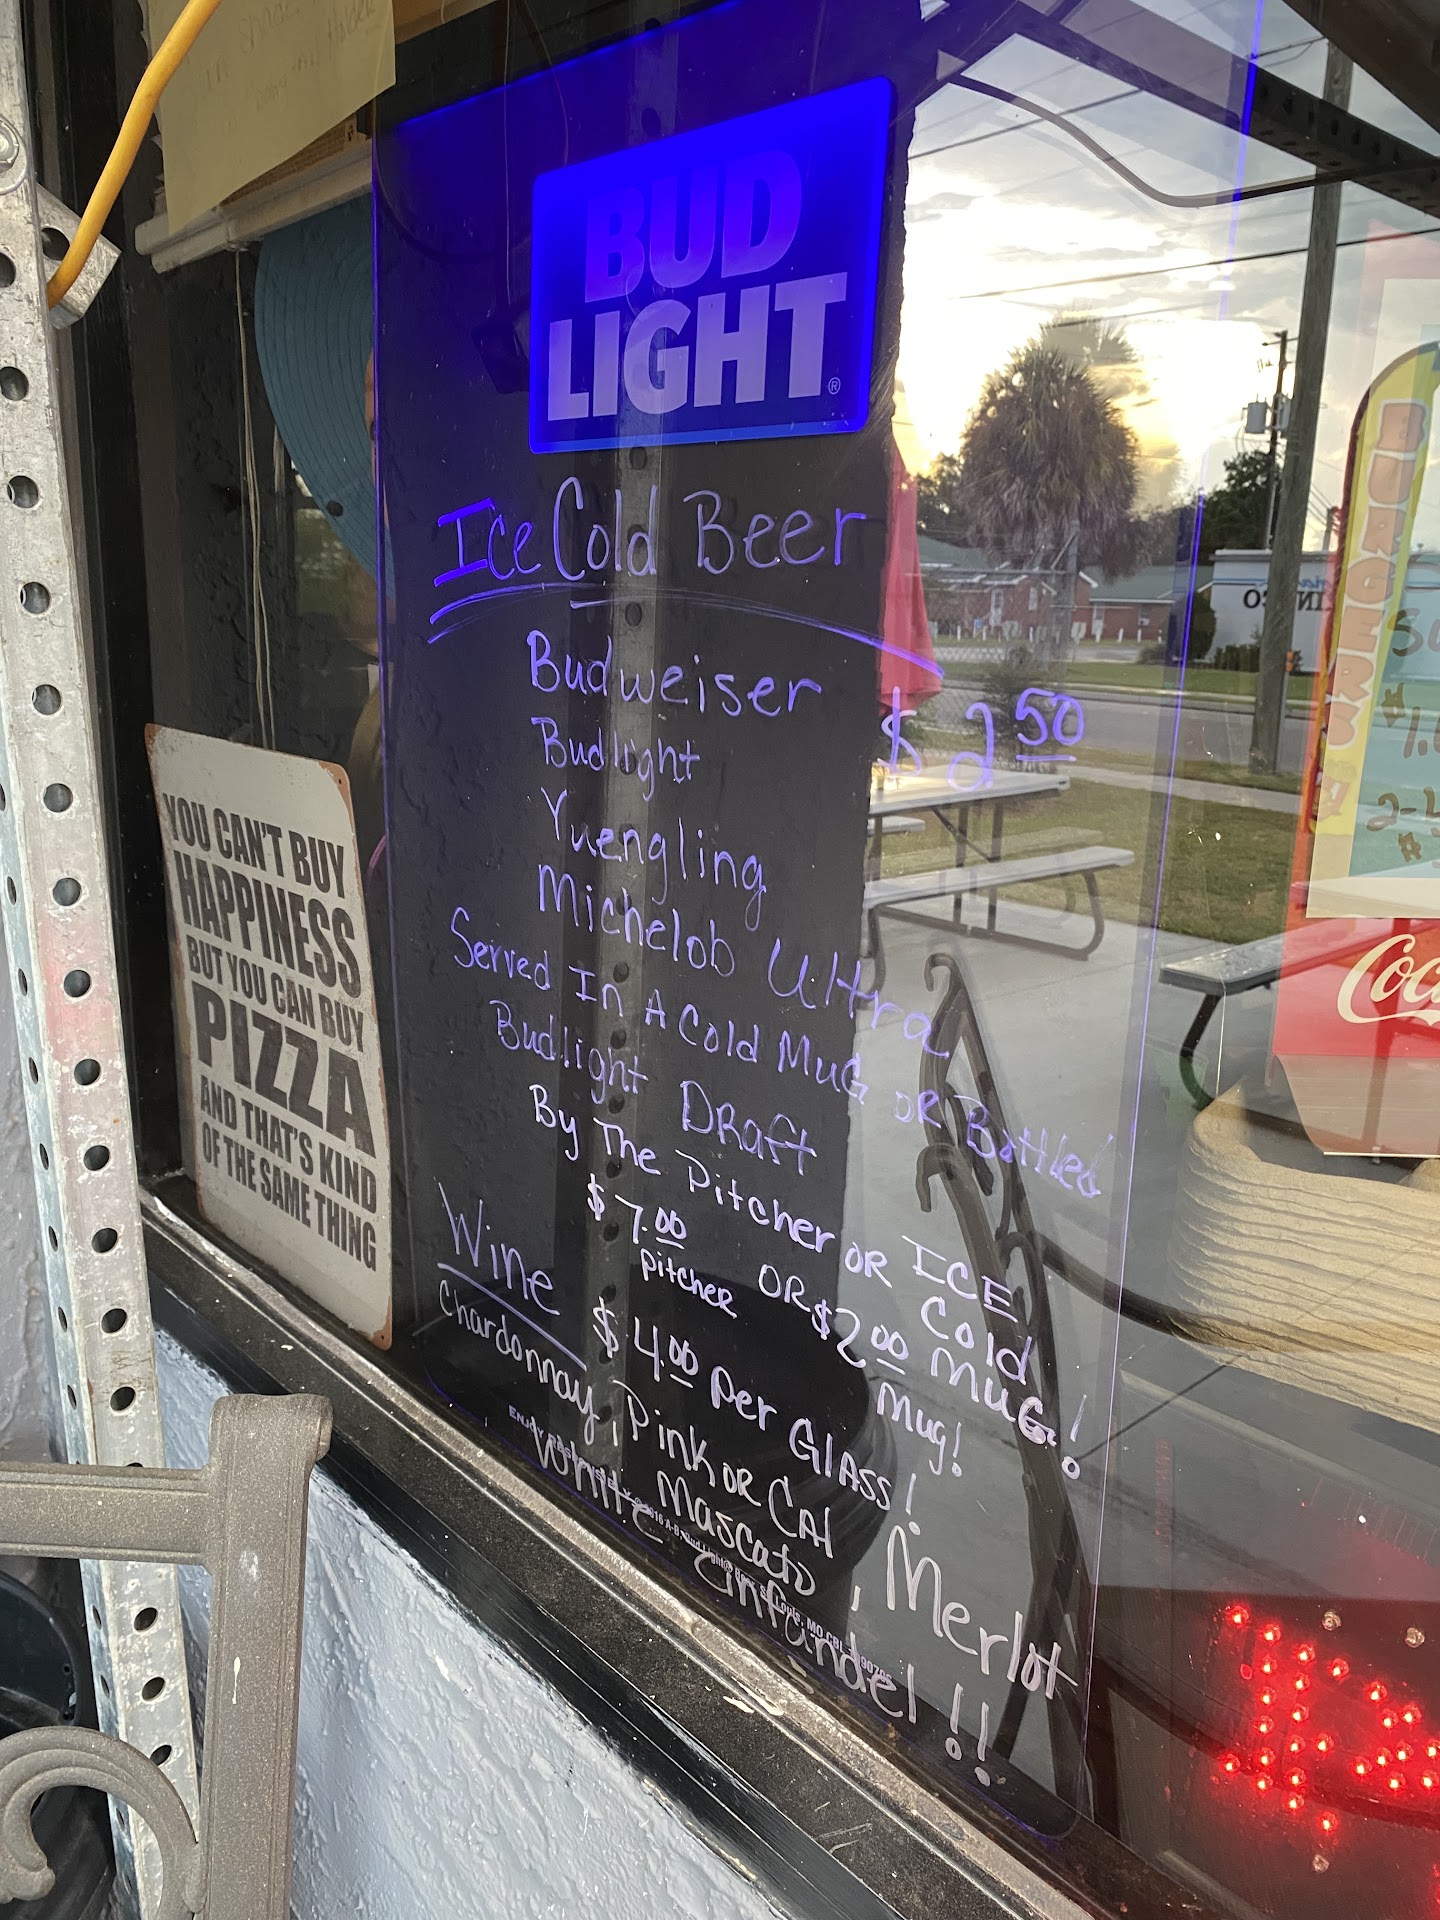 BUD
LIGHT®
Ice Cold Beer
Budweiser
Budlight
$2 50
Yuengling
Michelob Ultra
Served In A Cold Mug OR Bottled
Budlight Draft
By The Pitcher OR ICE
Cold
MUG!
$7.00
pitcher
OR $2 00
Mug!
Wine
$4.00 per Glass!
Chardonnay, Pink OR CAl
Mascato, Merlot
White Zinfandel!!
YOU CAN'T BUY
HAPPINESS
BUT YOU CAN BUY
PIZZA
AND THAT'S KIND
OF THE SAME THING
BURGERS
Coc